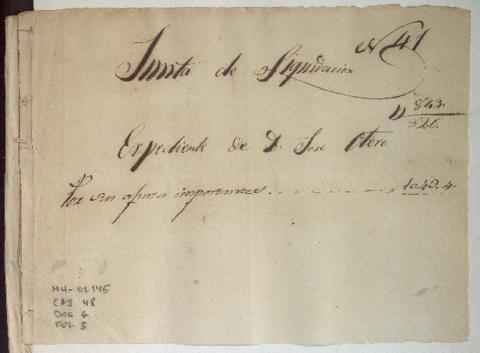 Nº 41
Junta de Liquidacion
843.
Expediente de D. Jose Otero
Por sus ajustes importantes 1040.4.
MH-OL145
CAJ 48
DOC 6
FOL 5